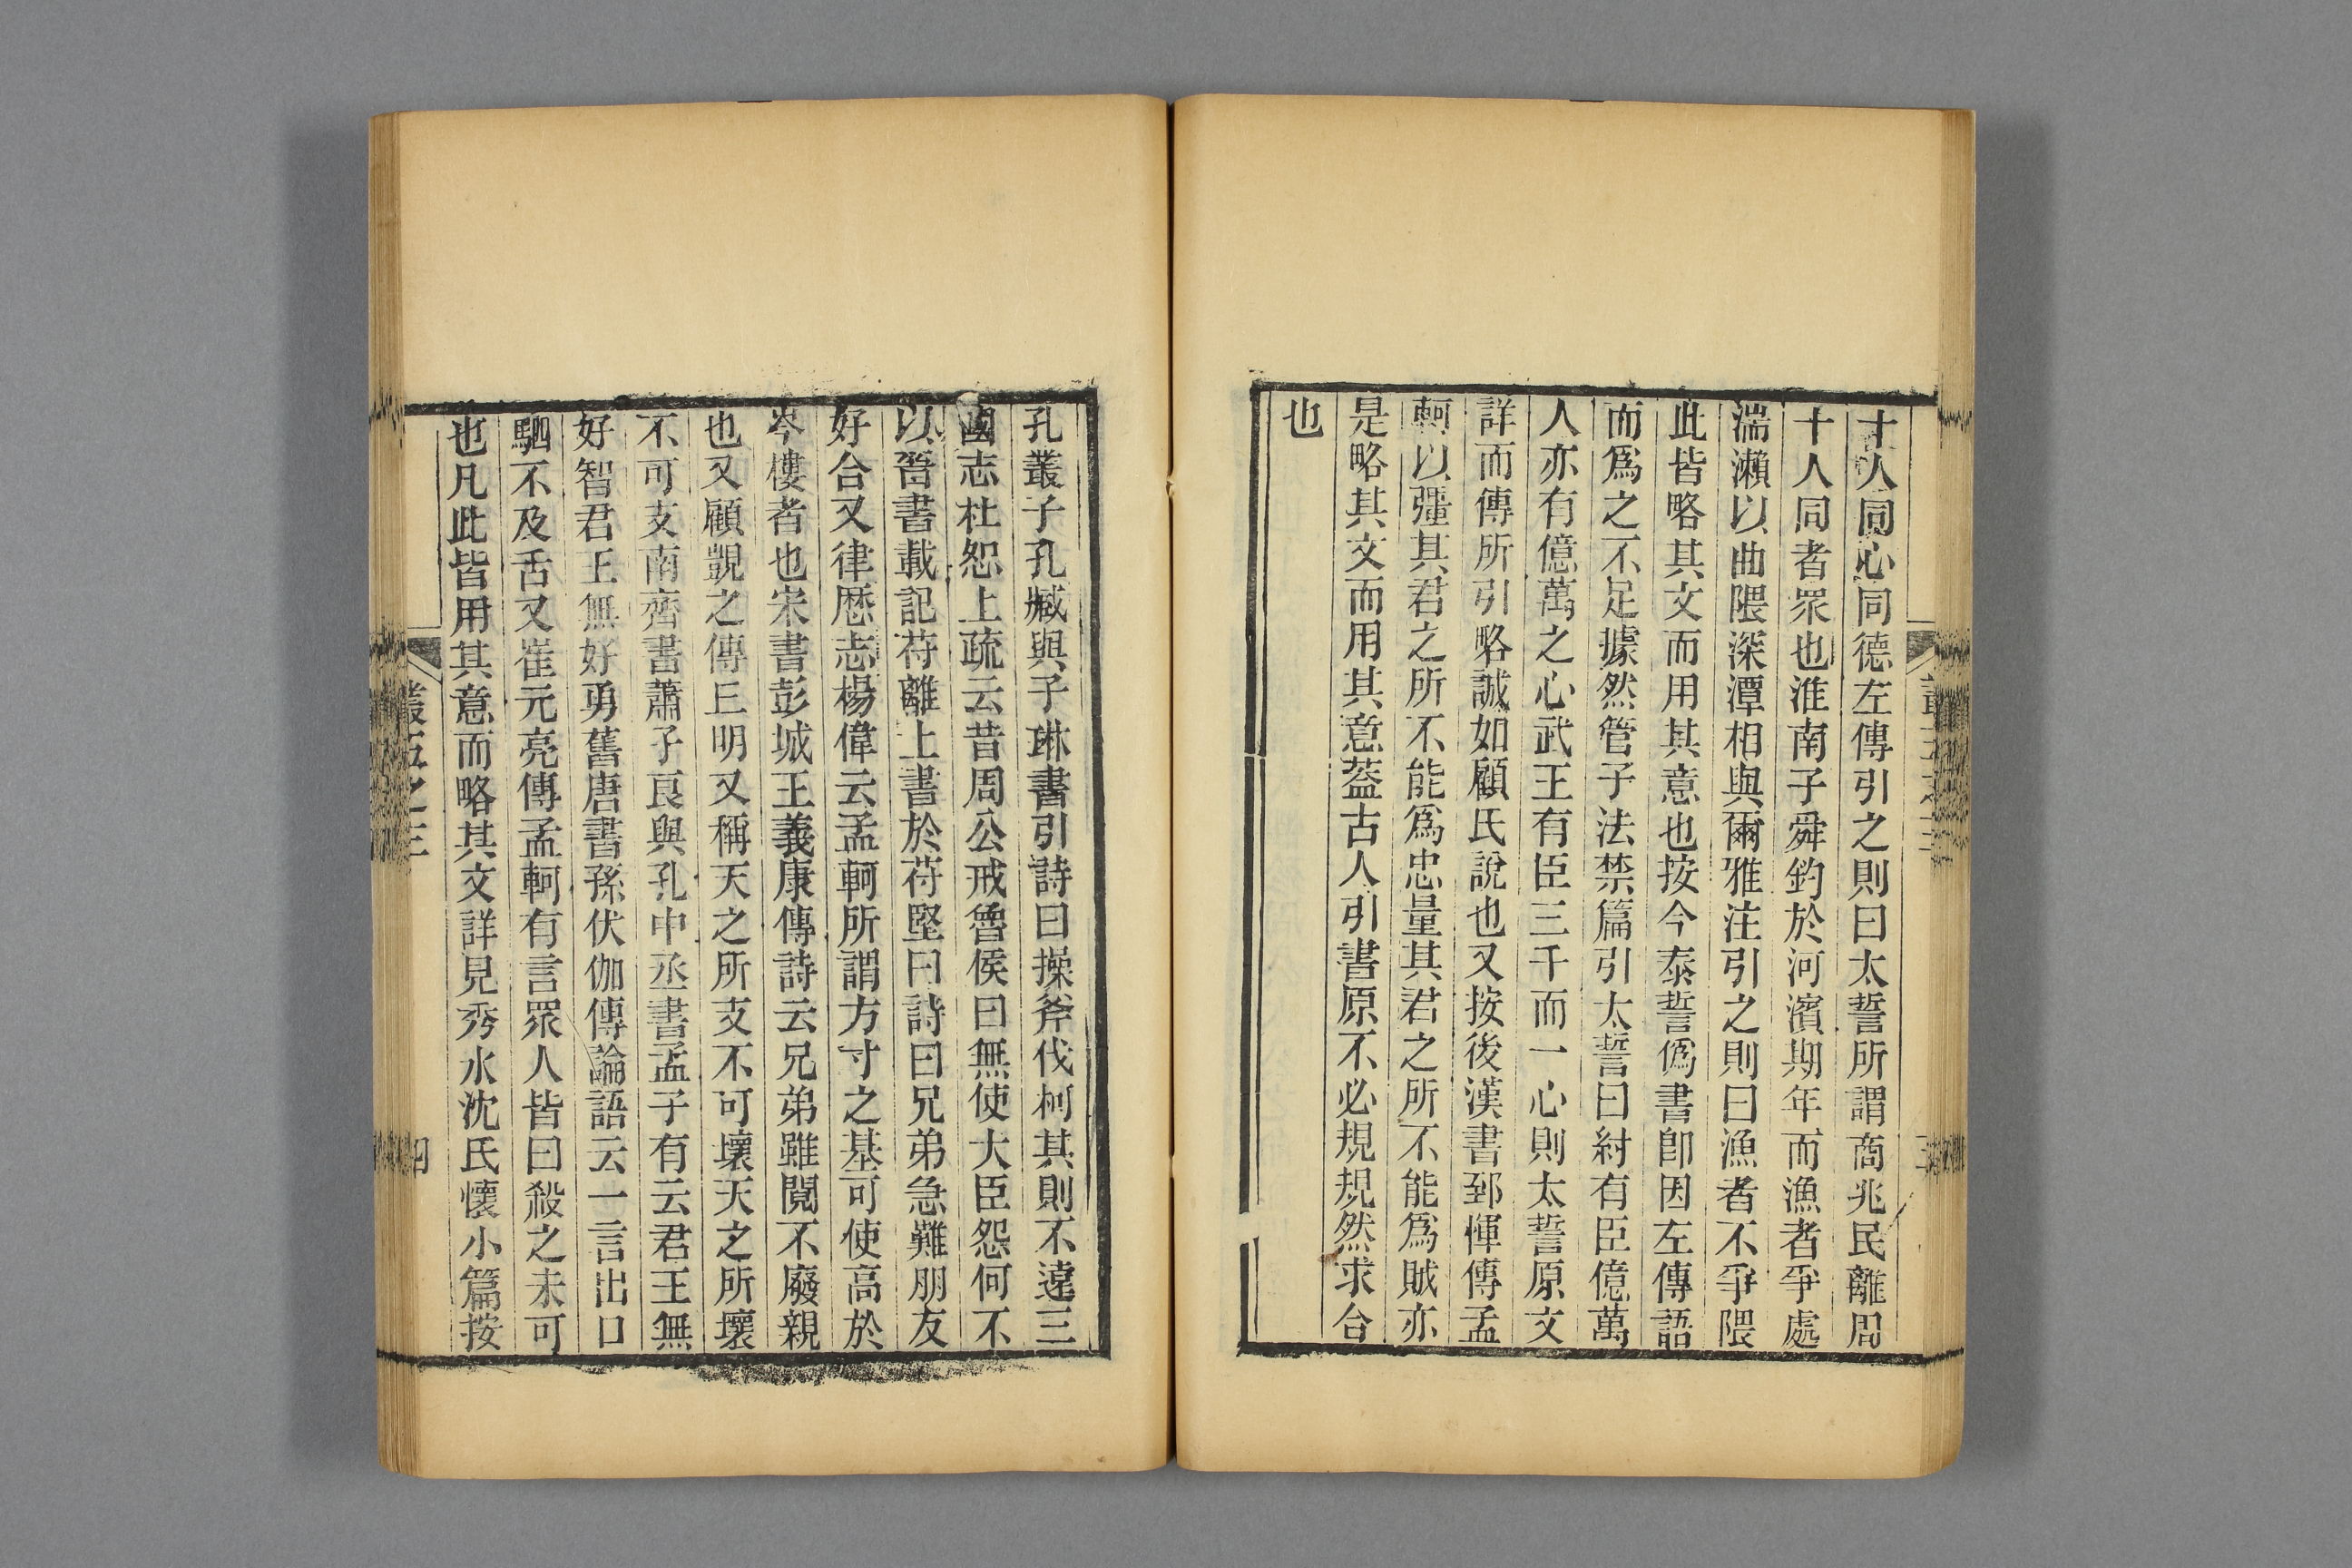 十人同心同德左傳引之則曰太誓所謂商兆民離周
十人同者眾也淮南子舜釣於河濱期年而漁者爭處
湍瀨以曲隈深潭相與爾雅注引之則曰漁者不爭隈
此皆略其文而用其意也按今泰誓僞書卽因左傳語
而爲之不足據然管子法禁篇引太誓曰紂有臣億萬
人亦有億萬之心武王有臣三千而一心則太誓原文
詳而傳所引略誠如顧氏說也又按後漢書郅惲傳孟
軻以彊其君之所不能爲忠量其君之所不能爲賊亦
是略其文而用其意葢古人引書原不必規規然求合
也
孔叢子孔臧與子琳書引詩曰操斧伐柯其則不遠三
國志杜恕上疏云昔周公戒魯侯曰無使大臣怨何不
以晉書載記苻離上書於苻堅曰詩曰兄弟急難朋友
好合又律厯志楊偉云孟軻所謂方寸之基可使高於
岑樓者也宋書彭城王義康傳詩云兄弟雖鬩不廢親
也又顧覬之傳王明又稱天之所支不可壞天之所壞
不可支南齊書蕭子良與孔中丞書孟子有云君王無
好智君王無好勇舊唐書孫伏伽傳論語云一言出口
駟不及舌又崔元亮傳孟軻有言眾人皆曰殺之未可
也凡此皆用其意而略其文詳見秀水沈氏懷小篇按
叢五之三
四